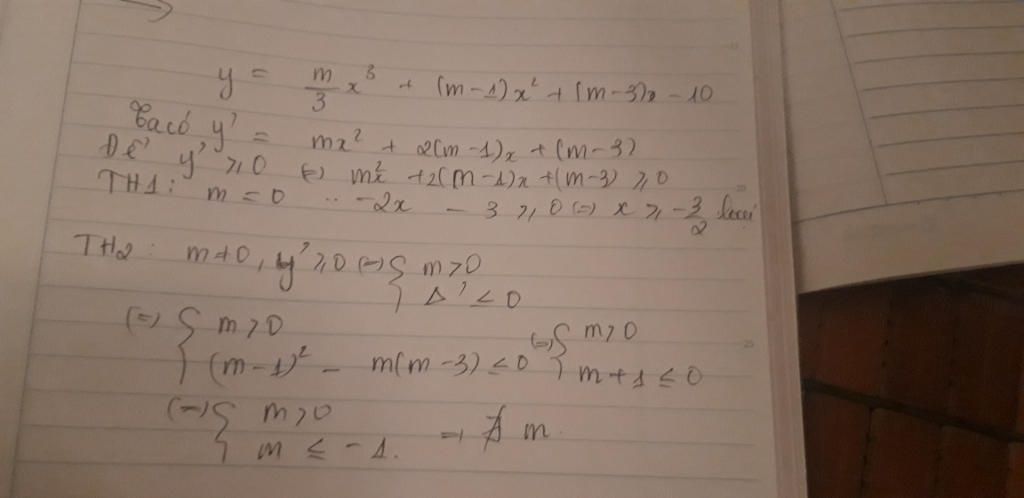 y = m/3 x³ + (m-1)x² + (m-3)x - 10
Ta có y' = mx² + 2(m-1)x + (m-3)
Để y' ≥ 0 (=) mx² + 2(m-1)x + (m-3) ≥ 0
TH1: m = 0 .. -2x - 3 ≥ 0 (=) x ≥ -3/2 loại
TH2: m ≠ 0, y' ≥ 0 (=) { m > 0
Δ' ≤ 0
(=) { m > 0 (=) { m > 0
(m-1)² - m(m-3) ≤ 0 m + 1 ≤ 0
(=) { m > 0 => ∄ m
m ≤ -1.